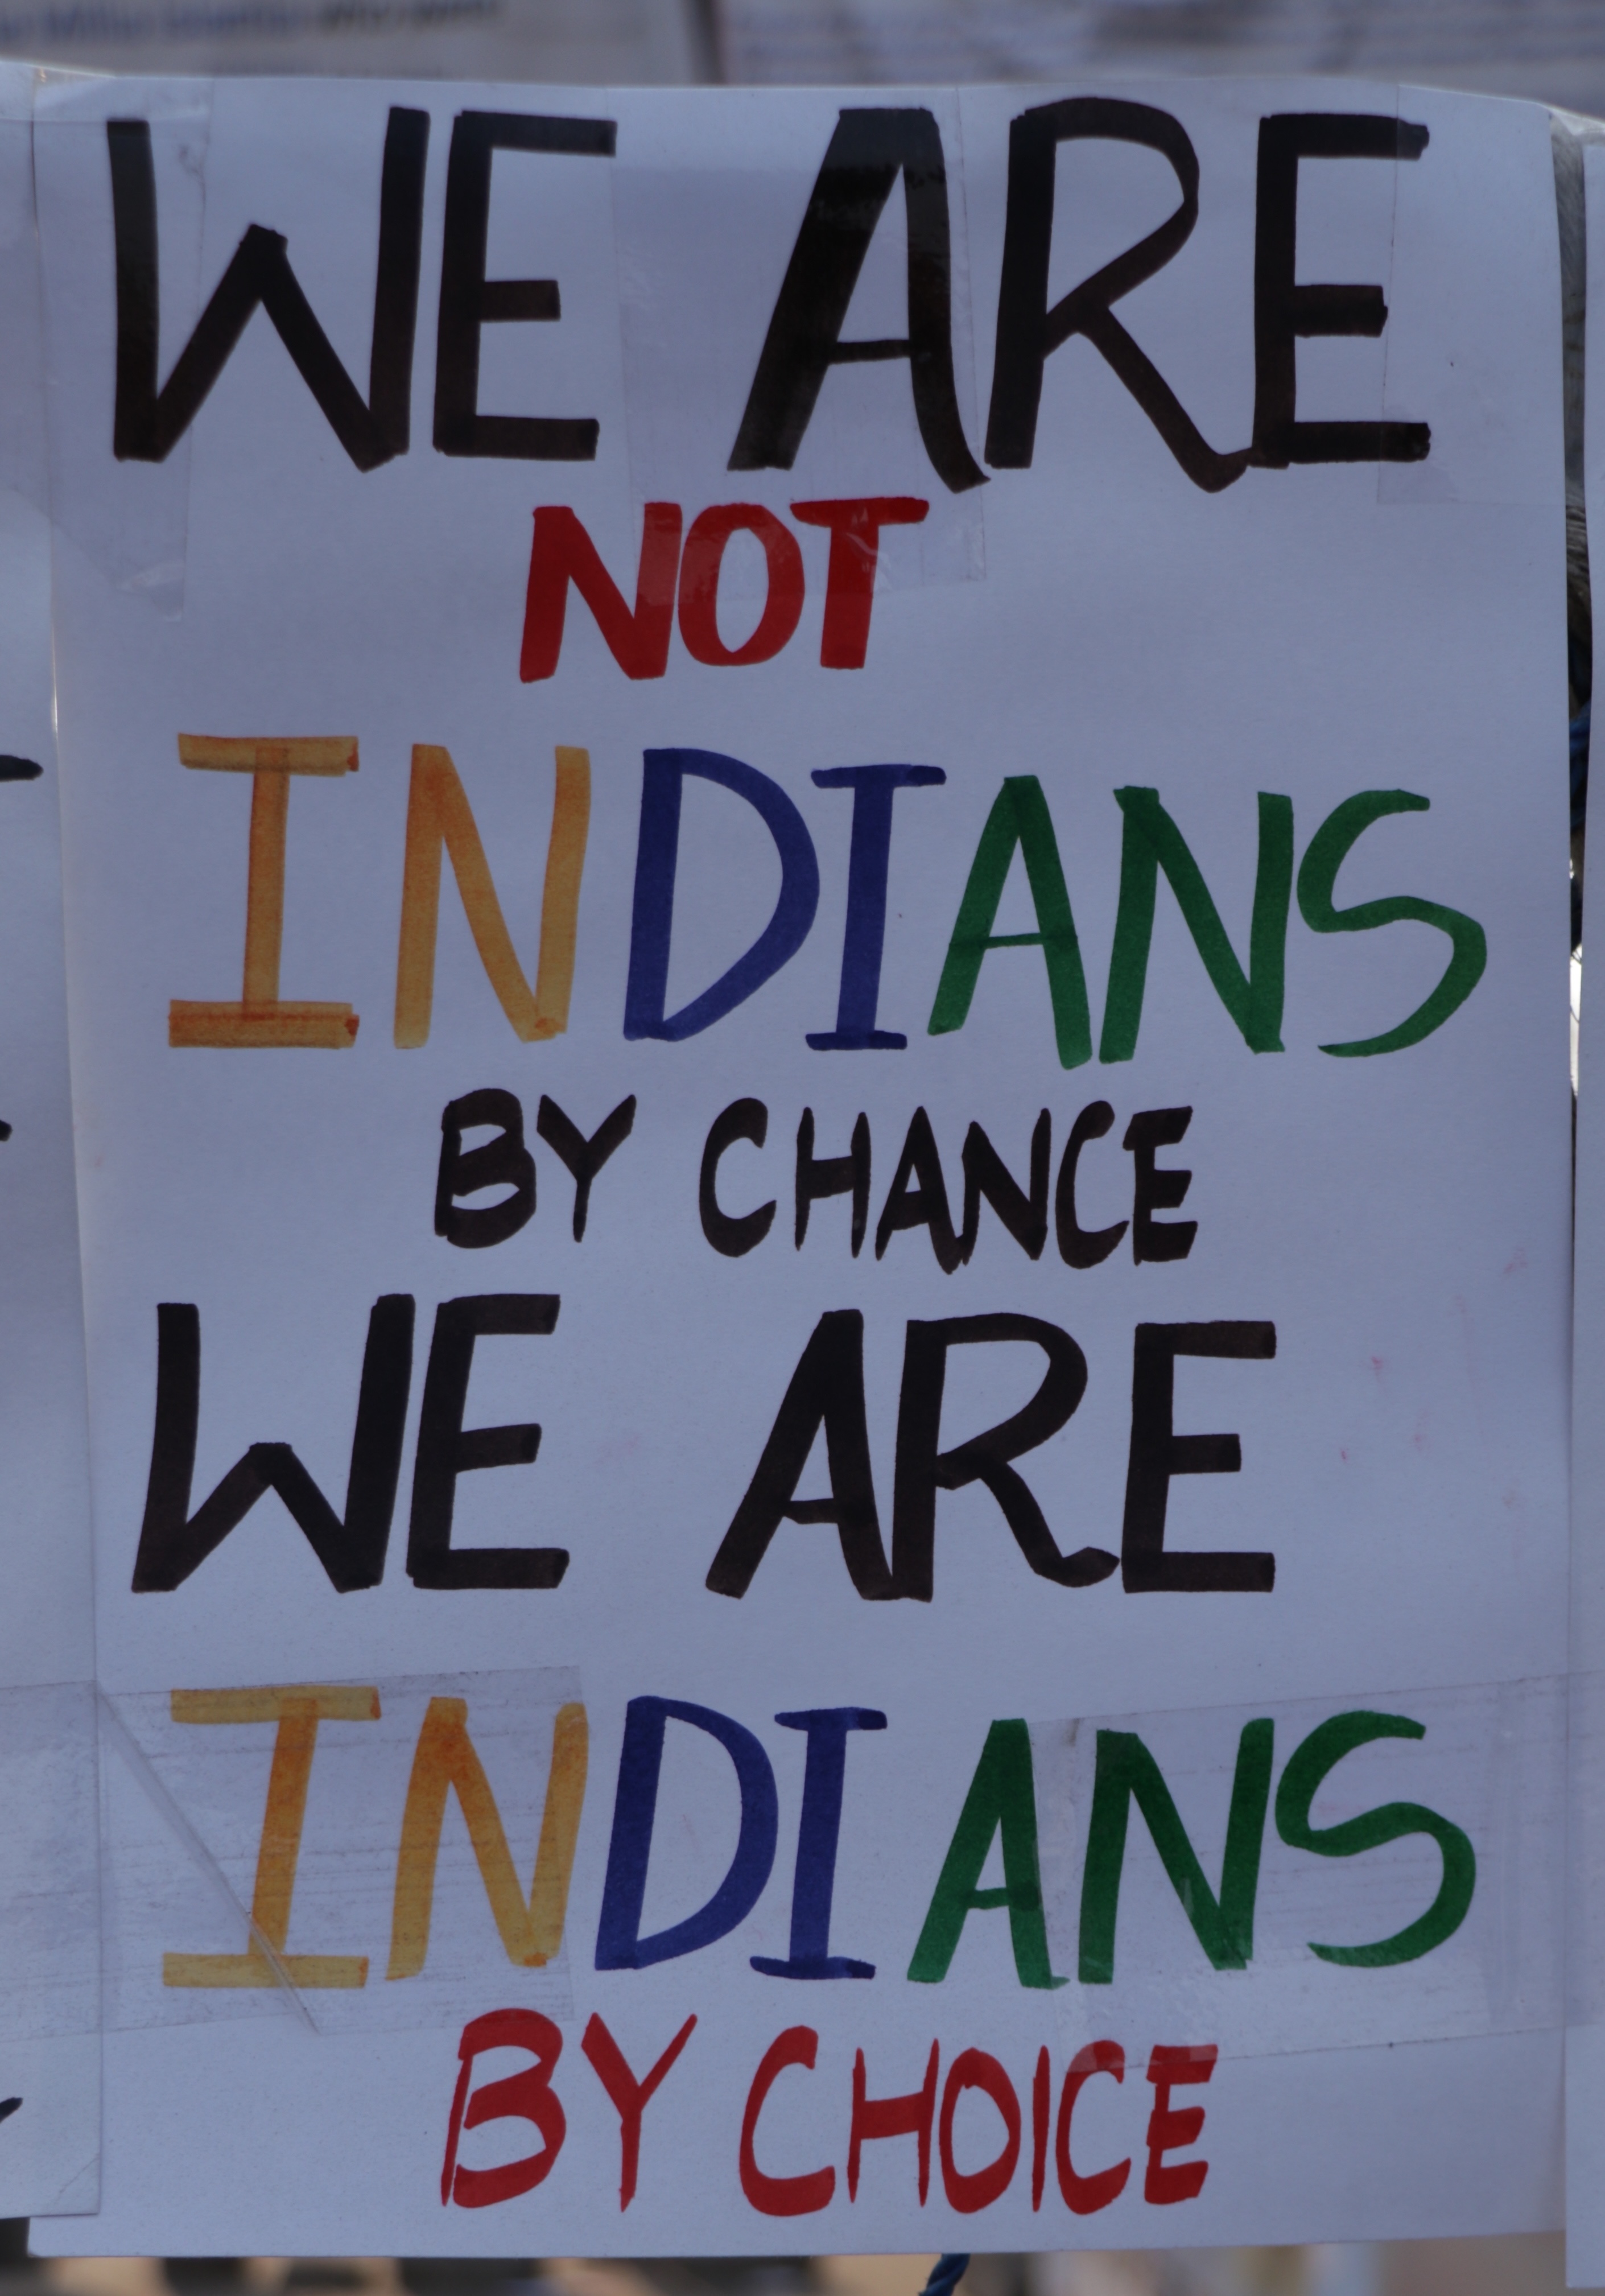 WE ARE
NOT
INDIANS
BY CHANCE
WE ARE
INDIANS
BY CHOICE